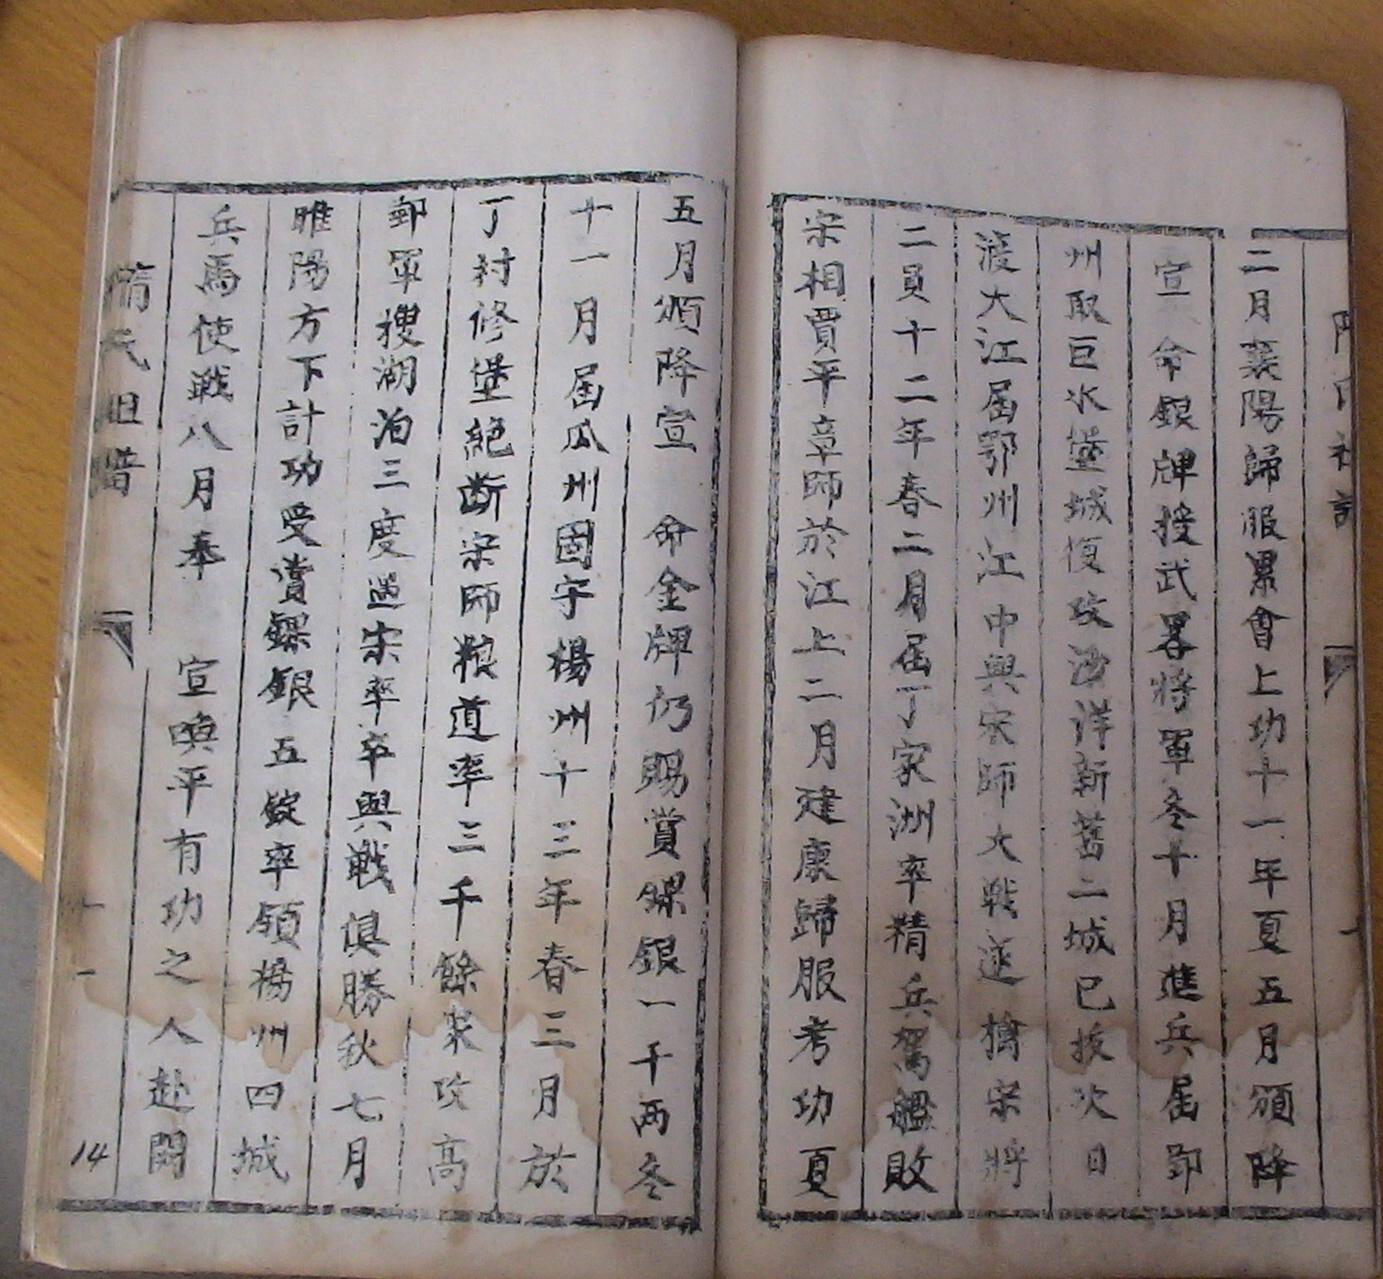 二月襄陽歸服累會上功十一年夏五月頒降
宣 命銀牌授武畧將軍冬十月進兵屆郢
州取巨水堡城復攻沙洋新舊二城已拔次日
渡大江屆鄂州江中與宋師大戰遂擒宋將
二員十二年春二月屆丁家洲率精兵駕艦敗
宋相賈平章師於江上二月建康歸服考功夏
五月頒降宣 命金牌仍賜賞鏍銀一千兩冬
十一月屆瓜州國字楊州十三年春三月於
丁村修堡絕断宋師粮道率三千餘衆攻高
郵軍搜湖泊三度遇宋率卒與戰俱勝秋七月
睢陽方下計功受賞鏍銀五錠率領楊州四城
兵馬使戰八月奉 宣喚平有功之人赴闕
隋氏祖譜
十一
14